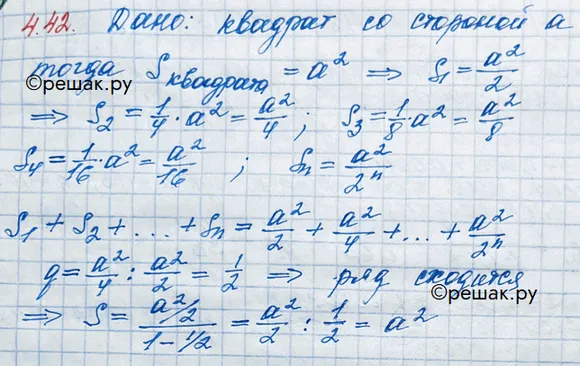 4.42. Дано: квадрат со стороной a
тогда S квадрата = a² ⇒ S₁ = a²/2
©решак.ру
⇒ S₂ = 1/4 · a² = a²/4 ; S₃ = 1/8 · a² = a²/8
S₄ = 1/16 · a² = a²/16 ; Sn = a²/2ⁿ
S₁ + S₂ + ... + Sn = a²/2 + a²/4 + ... + a²/2ⁿ
q = a²/4 : a²/2 = 1/2 ⇒ ряд сходится
©решак.ру
⇒ S = (a²/2)/(1 - 1/2) = a²/2 : 1/2 = a²